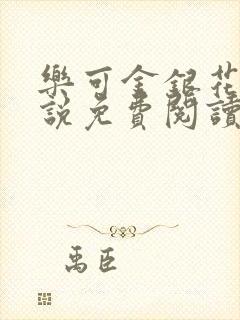 樂可金銀花
說免費閱讀
禹臣